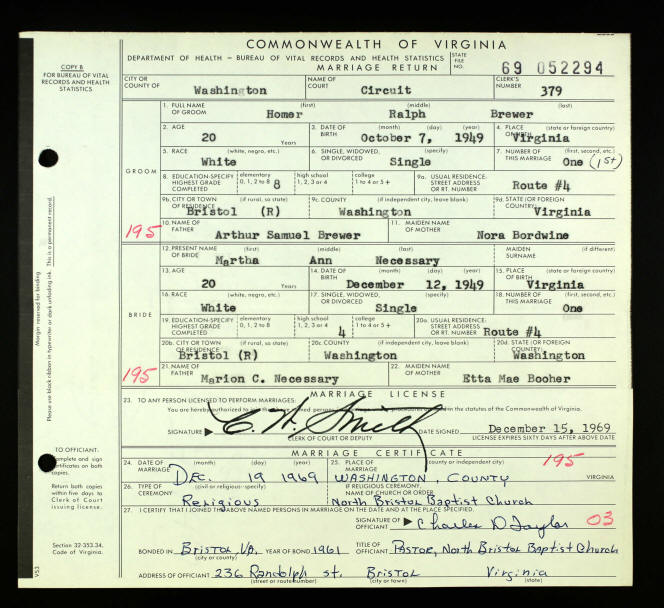 COMMONWEALTH OF VIRGINIA
COPY B
FOR BUREAU OF VITAL RECORDS AND HEALTH STATISTICS
DEPARTMENT OF HEALTH — BUREAU OF VITAL RECORDS AND HEALTH STATISTICS
MARRIAGE RETURN
STATE FILE NO. 69 052294
CITY OR COUNTY OF Washington NAME OF COURT Circuit CLERK'S NUMBER 379
GROOM
1. FULL NAME OF GROOM (first) Homer (middle) Ralph (last) Brewer
2. AGE 20 Years 3. DATE OF BIRTH (month) (day) (year) October 7, 1949 4. PLACE OF BIRTH (state or foreign country) Virginia
5. RACE (white, negro, etc.) White 6. SINGLE, WIDOWED, OR DIVORCED (specify) Single 7. NUMBER OF THIS MARRIAGE (first, second, etc.) One (1st)
8. EDUCATION-SPECIFY HIGHEST GRADE COMPLETED elementary 0, 1, 2 to 8 8 high school 1, 2, 3 or 4 college 1 to 4 or 5+ 9a. USUAL RESIDENCE: STREET ADDRESS OR RT. NUMBER Route #4
9b. CITY OR TOWN OF RESIDENCE (if rural, so state) Bristol (R) 9c. COUNTY (if independent city, leave blank) Washington 9d. STATE (OR FOREIGN COUNTRY) Virginia
195 10. NAME OF FATHER Arthur Samuel Brewer 11. MAIDEN NAME OF MOTHER Nora Bordwine
BRIDE
12. PRESENT NAME OF BRIDE (first) Martha (middle) Ann (last) Necessary MAIDEN SURNAME (if different)
13. AGE 20 Years 14. DATE OF BIRTH (month) (day) (year) December 12, 1949 15. PLACE OF BIRTH (state or foreign country) Virginia
16. RACE (white, negro, etc.) White 17. SINGLE, WIDOWED, OR DIVORCED (specify) Single 18. NUMBER OF THIS MARRIAGE (first, second, etc.) One
19. EDUCATION-SPECIFY HIGHEST GRADE COMPLETED elementary 0, 1, 2 to 8 high school 1, 2, 3 or 4 4 college 1 to 4 or 5+ 20a. USUAL RESIDENCE: STREET ADDRESS OR RT. NUMBER Route #4
20b. CITY OR TOWN OF RESIDENCE (if rural, so state) Bristol (R) 20c. COUNTY (if independent city, leave blank) Washington 20d. STATE (OR FOREIGN COUNTRY) Washington
195 21. NAME OF FATHER Marion C. Necessary 22. MAIDEN NAME OF MOTHER Etta Mae Booher
MARRIAGE LICENSE
23. TO ANY PERSON LICENSED TO PERFORM MARRIAGES:
You are hereby authorized to the statutes of the Commonwealth of Virginia.
SIGNATURE C. H. Smith DATE SIGNED December 15, 1969
CLERK OF COURT OR DEPUTY LICENSE EXPIRES SIXTY DAYS AFTER ABOVE DATE
MARRIAGE CERTIFICATE
24. DATE OF MARRIAGE (month) (day) (year) DEC. 19 1969 25. PLACE OF MARRIAGE (county or independent city) WASHINGTON, COUNTY 195 VIRGINIA
26. TYPE OF CEREMONY (civil or religious-specify) Religious IF RELIGIOUS CEREMONY, NAME OF CHURCH OR ORDER North Bristol Baptist Church
27. I CERTIFY THAT I JOINED THE ABOVE NAMED PERSONS IN MARRIAGE ON THE DATE AND AT THE PLACE SPECIFIED.
SIGNATURE OF OFFICIANT Charles D Taylor 03
BONDED IN Bristol Va. (city or county) YEAR OF BOND 1961 TITLE OF OFFICIANT PASTOR, North Bristol Baptist Church
ADDRESS OF OFFICIANT 236 Randolph st. (street or route number) Bristol (city or town) Virginia (state)
Margin reserved for binding
Please use black ribbon in typewriter or dark unfading ink. This is a permanent record.
TO OFFICIANT:
Complete and sign certificates on both copies.
Return both copies within five days to Clerk of Court issuing license.
Section 32-353.34, Code of Virginia.
VS3